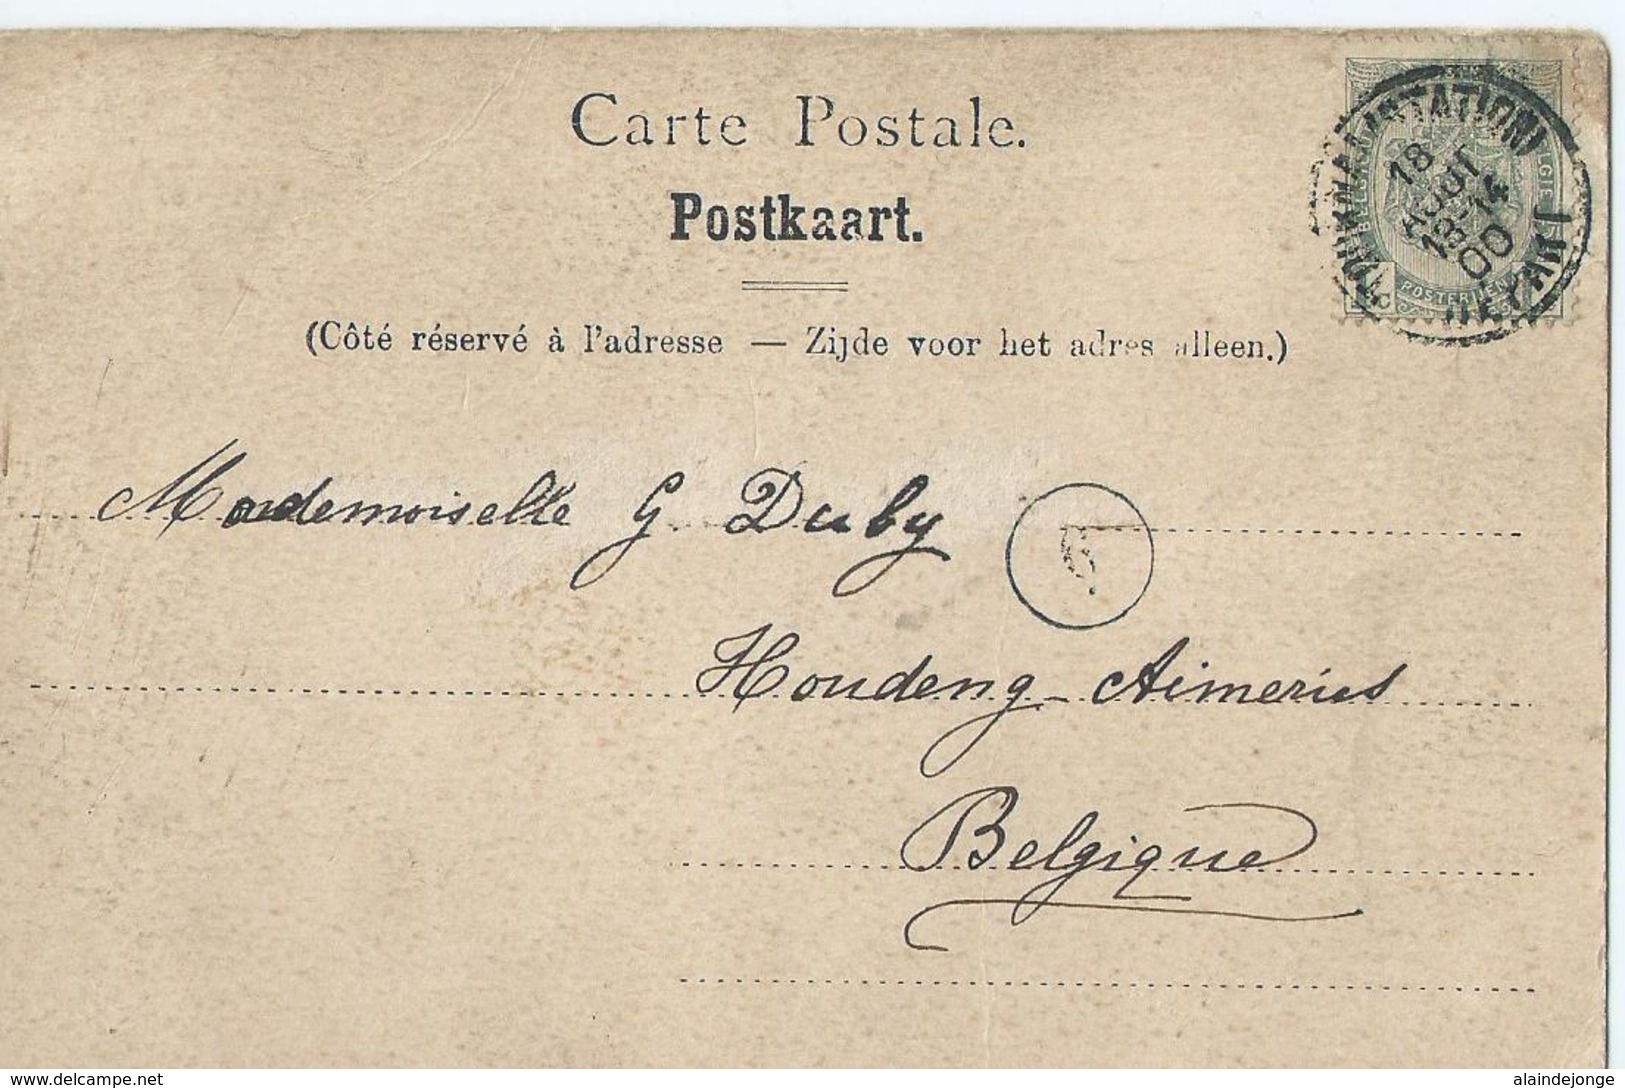 Carte Postale.
Postkaart.
(Côté réservé à l'adresse — Zijde voor het adres alleen.)
(STATION)
18
AOUT
18-19
00
POSTERIJEN
Mademoiselle G Duby
Houdeng-Aimeries
Belgique
www.delcampe.net
alaindejonge